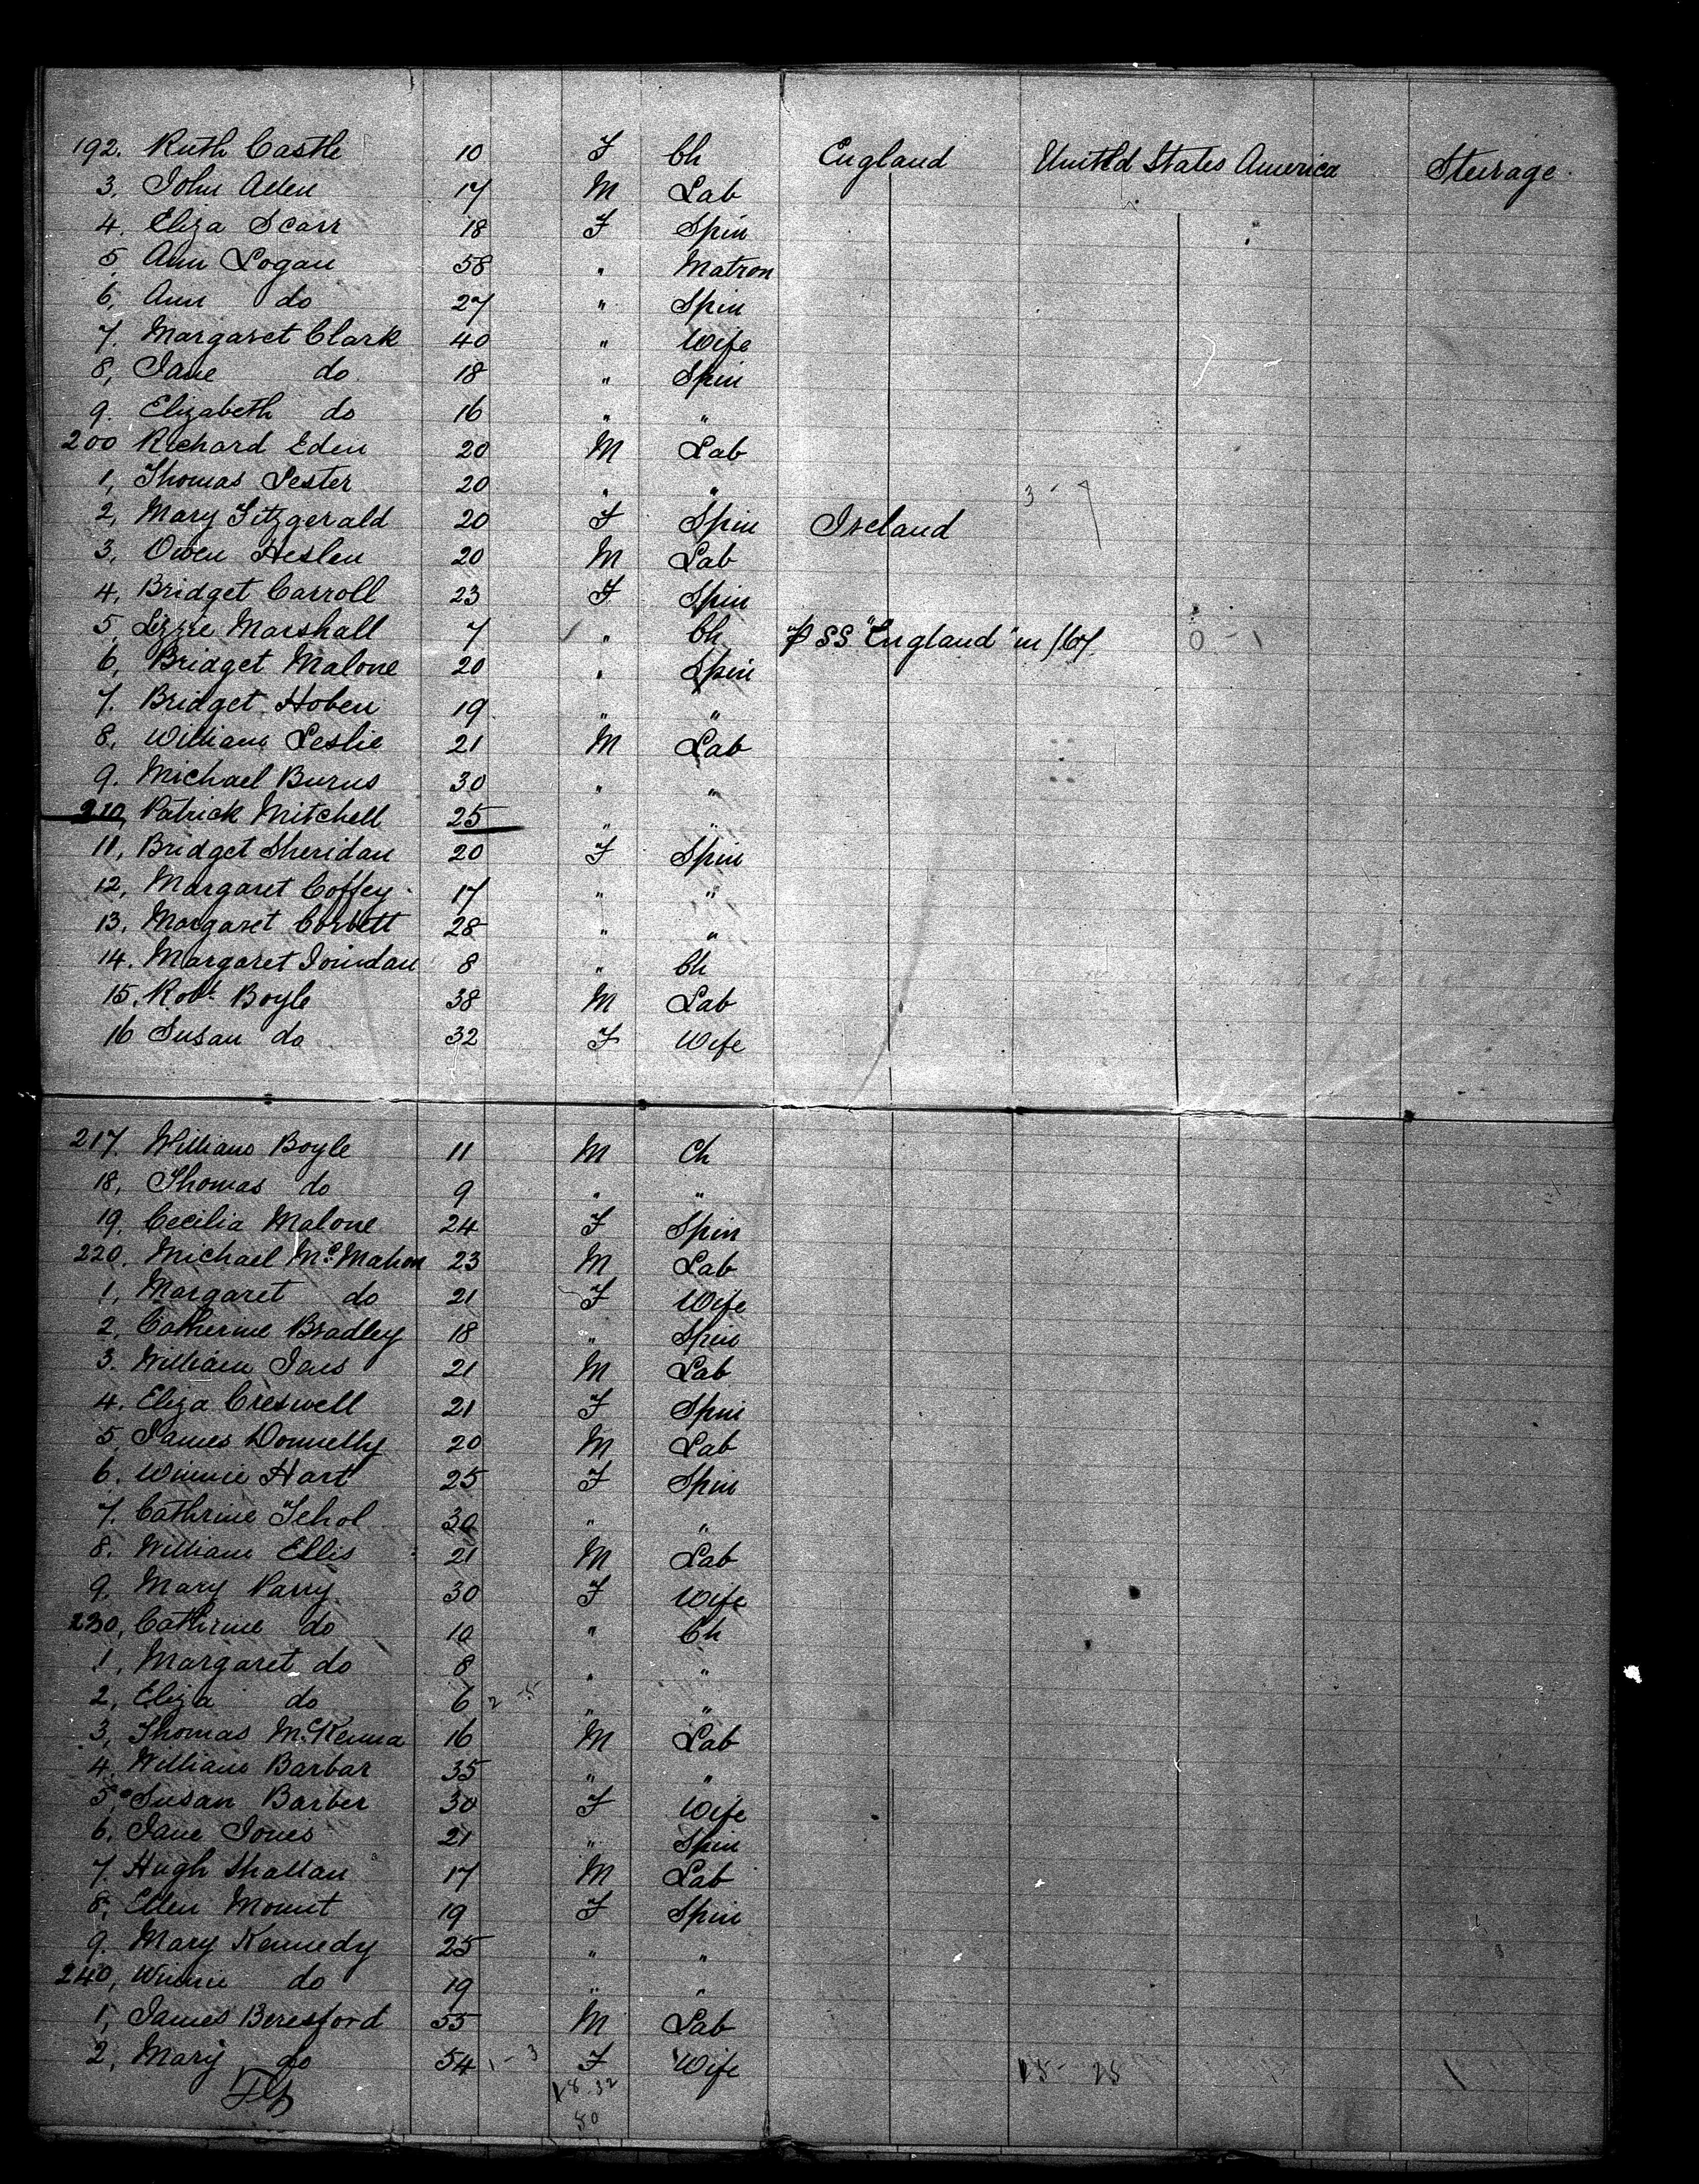 192. Ruth Castle 10 F Ch England United States America Steerage
3, John Allen 17 M Lab
4, Eliza Scarr 18 F Spin
5, Ann Logan 58 " Matron
6, Ann do 27 " Spin
7. Margaret Clark 40 " Wife
8, Jane do 18 " Spin
9. Elizabeth do 16 " "
200 Richard Eden 20 M Lab
1, Thomas Lester 20 " "
2, Mary Fitzgerald 20 F Spin Ireland
3, Owen Heslen 20 M Lab
4, Bridget Carroll 23 F Spin
5, Lizzie Marshall 7 " Ch SS "England" in /67. 0 - 1
6, Bridget Malone 20 " Spin
7. Bridget Hoben 19 " "
8. William Leslie 21 M Lab
9. Michael Burns 30 " "
210, Patrick Mitchell 25 " "
11, Bridget Sheridan 20 F Spin
12, Margaret Coffey 17 " "
13, Margaret Corbett 28 " "
14. Margaret 8 " Ch
15, Robt. Boyle 38 M Lab
16 Susan do 32 F Wife
217. William Boyle 11 M Ch
18, Thomas do 9 " "
19, Cecilia Malone 24 F Spin
220. Michael McMahon 23 M Lab
1, Margaret do 21 F Wife
2, Catherine Bradley 18 " Spin
3. William 21 M Lab
4. Eliza Creswell 21 F Spin
5, James Donnelly 20 M Lab
6. Winnie Hart 25 F Spin
7. Cathrine 30 " "
8. William Ellis 21 M Lab
9. Mary Parry 30 F Wife
230, Cathrine do 10 " Ch
1, Margaret do 8 " "
2, Eliza do 6 " "
3, Thomas McKenna 16 M Lab
4. William Barbar 35 " "
5, Susan Barber 30 F Wife
6. Jane Jones 21 " Spin
7. Hugh Shallan 17 M Lab
8, Ellen Mount 19 F Spin
9. Mary Kennedy 25 " "
240, Winnie do 19 " "
1, James Beresford 55 M Lab
2, Mary do 54 1 - 3 F Wife